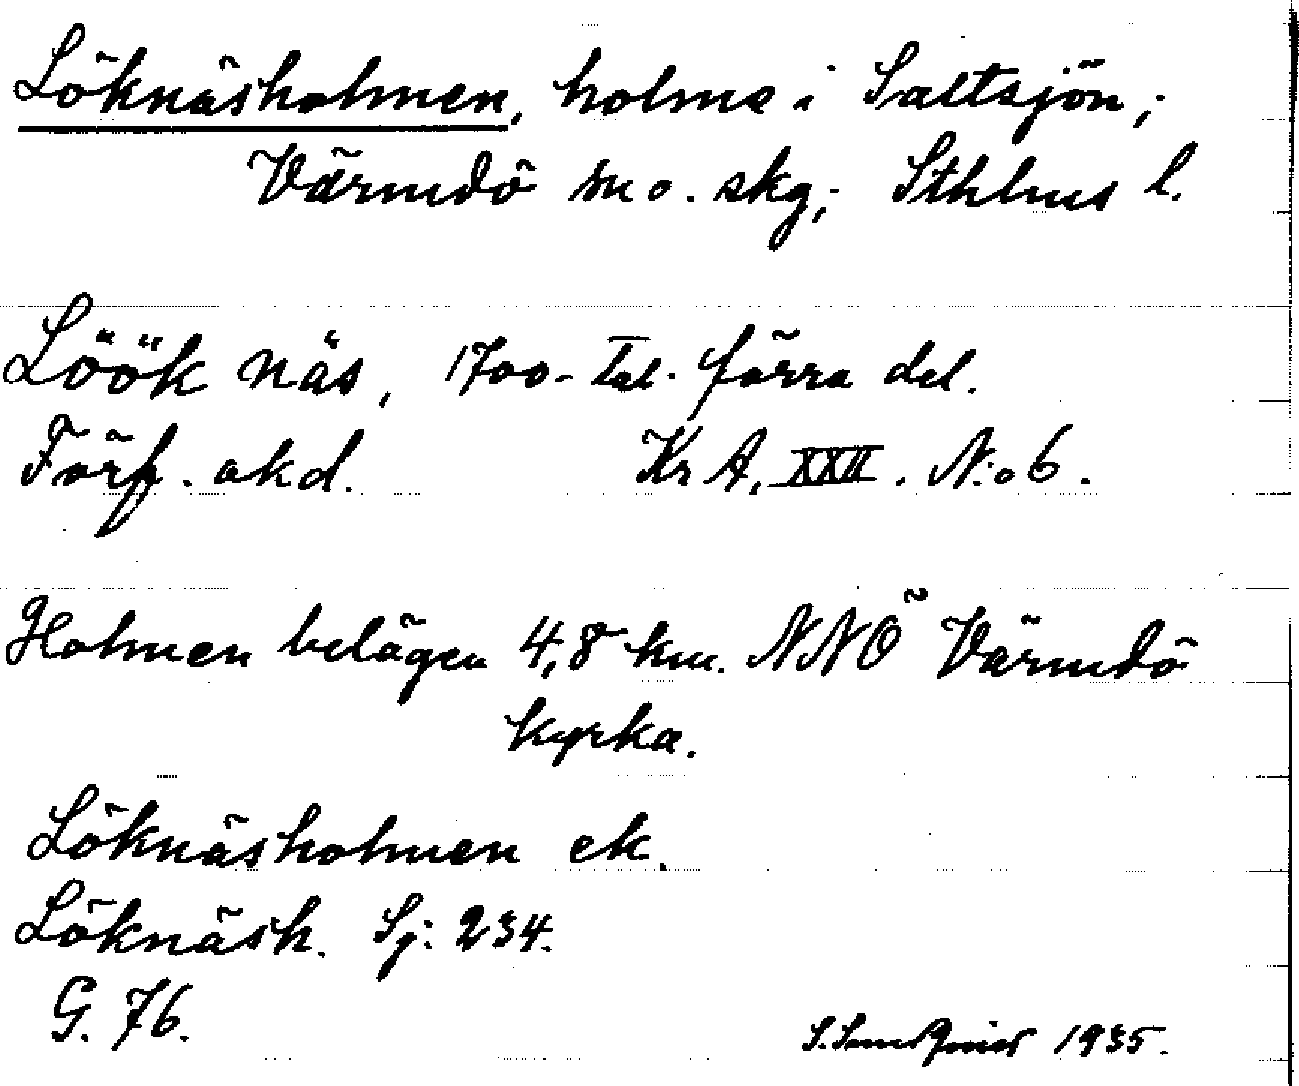 Löknäsholmen, holme i Saltsjön,
Värmdö sn o. skg, Sthlms l.
Löök näs, 1700-tal. förra del.
Förf. okd. Kr A. XXII. N:o 6.
Holmen belägen 4,8 km. NNÖ Värmdö
kyrka.
Löknäsholmen ek.
Löknäsh. Sj: 234.
G. 76.
1935.